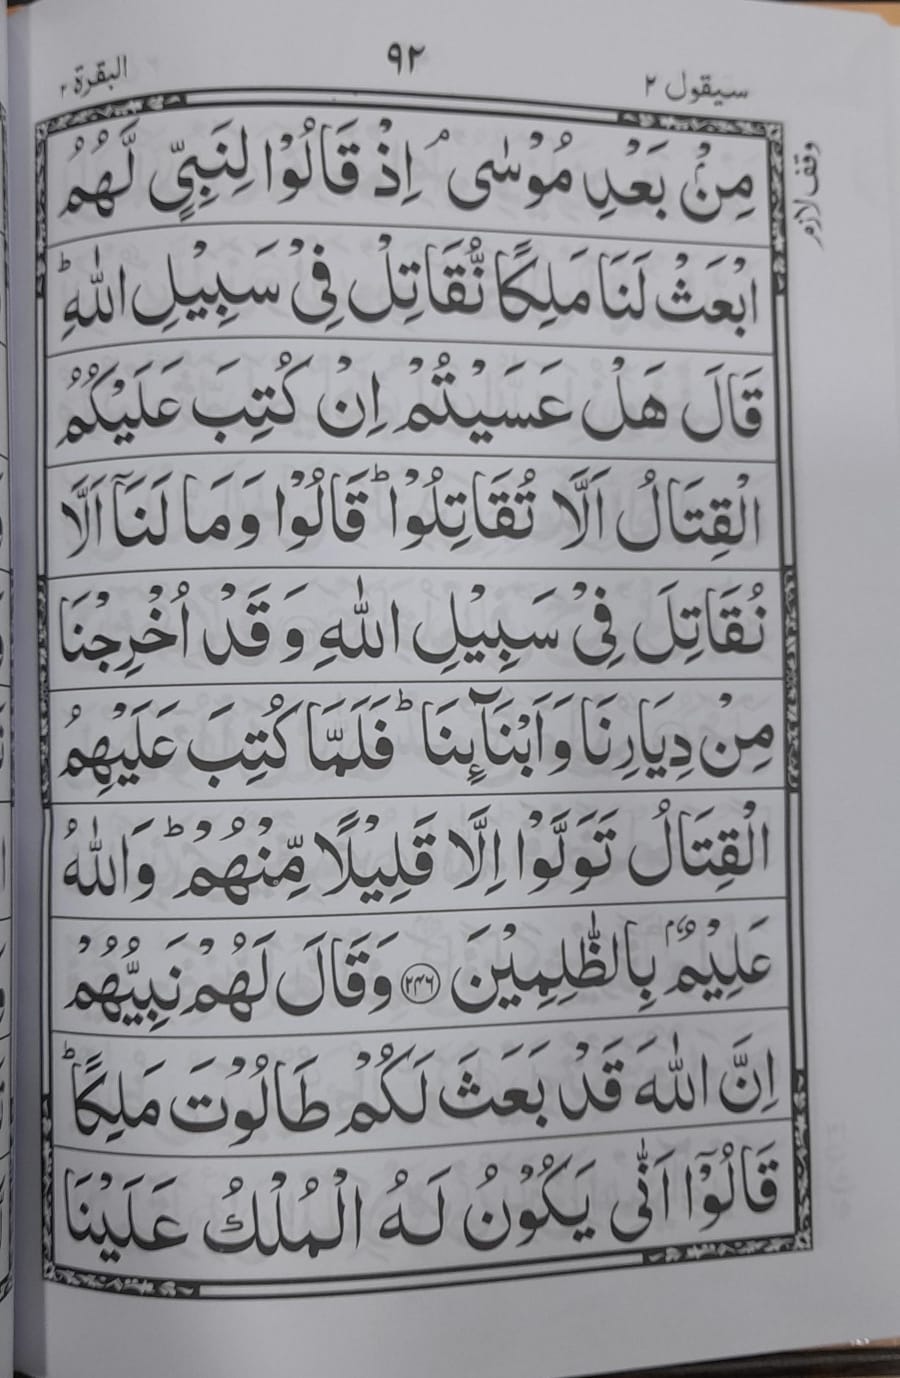 البقرة ٢
٩٢
سيقول ٢
وقف لازم
مِنْۢ بَعْدِ مُوْسٰى ۘ اِذْ قَالُوْا لِنَبِيٍّ لَّهُمُ
ابْعَثْ لَنَا مَلِكًا نُّقَاتِلْ فِيْ سَبِيْلِ اللّٰهِ ؕ
قَالَ هَلْ عَسَيْتُمْ اِنْ كُتِبَ عَلَيْكُمُ
الْقِتَالُ اَلَّا تُقَاتِلُوْا ؕ قَالُوْا وَمَا لَنَاۤ اَلَّا
نُقَاتِلَ فِيْ سَبِيْلِ اللّٰهِ وَ قَدْ اُخْرِجْنَا
مِنْ دِيَارِنَا وَاَبْنَآىِٕنَا ؕ فَلَمَّا كُتِبَ عَلَيْهِمُ
الْقِتَالُ تَوَلَّوْا اِلَّا قَلِيْلًا مِّنْهُمْ ؕ وَاللّٰهُ
عَلِيْمٌۢ بِالظّٰلِمِيْنَ ﴿٢٤٦﴾ وَقَالَ لَهُمْ نَبِيُّهُمْ
اِنَّ اللّٰهَ قَدْ بَعَثَ لَكُمْ طَالُوْتَ مَلِكًا ؕ
قَالُوْۤا اَنّٰى يَكُوْنُ لَهُ الْمُلْكُ عَلَيْنَا